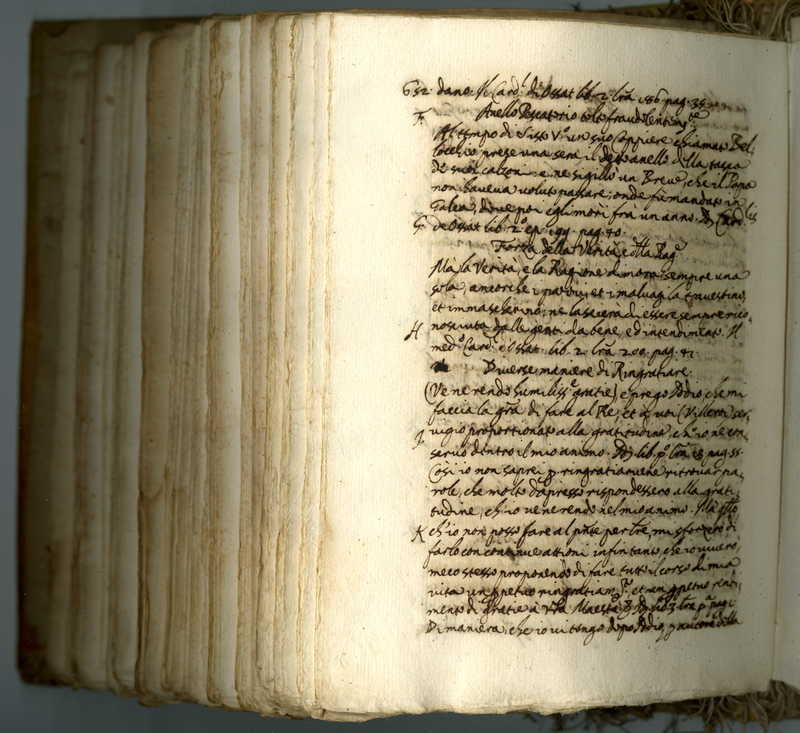 652. dano. Il Card.l di Ossat lib. 2. lrã 186 pag. 35.
F. Anello Pescatorio tolto fraudolentem.te
Al tempo di Sisto V.o un suo Coppiere chiamato Bel-
locchio prese una sera il detto anello della tasca
de suoi calzoni e ne sigillò un Breve, che il Papa
non haveva voluto passare; onde fù mandato in
Galea, dove poi egli morì frà un anno. Card.l
G. de Ossat lib. 2.o ep. 199. pag. 40.
Forza della Verità, e della Rag.e
Mà la Verità, e la Ragione dimora sempre una
sola, ancorche i et i malvagi la travestino,
et immascherino; ne lascierà di essere sempre rico-
H nosciuta dalle genti da bene, e d'intendimento. Il
med.o Card.l d'Ossat. lib. 2. lrã 200. pag. 41.
Diverse maniere di Ringratiare.
(Ve ne rendo humiliss.e gratie), e prego Iddio, che mi
faccia la grã di fare al Rè, et à voi (Villeroi) ser-
vigio proportionato alla gratitudine, ch'io ne con-
I servo dentro il mio animo. lib. p.o lrã 13. pag. 55.
Così io non saprei p ringratiarvene ritrovar pa-
role, che molto d'apresso rispondessero alla grati-
tudine, ch'io ve ne rendo nel mio animo. Mà
K ch'io non posso fare al pñte per lrẽ, mi sforzerò di
farlo con continue attioni infin tanto, che io viverò,
meco stesso proponendo di fare tutto il corso di mia
vita un ppetuo ringratiam.to, et un ppetuo rendi-
mento di gratie à Vrã Maestà. lib. 3. lrã p.a pag. 1
Di maniera, che io vi tengo dopo Iddio, p autore della